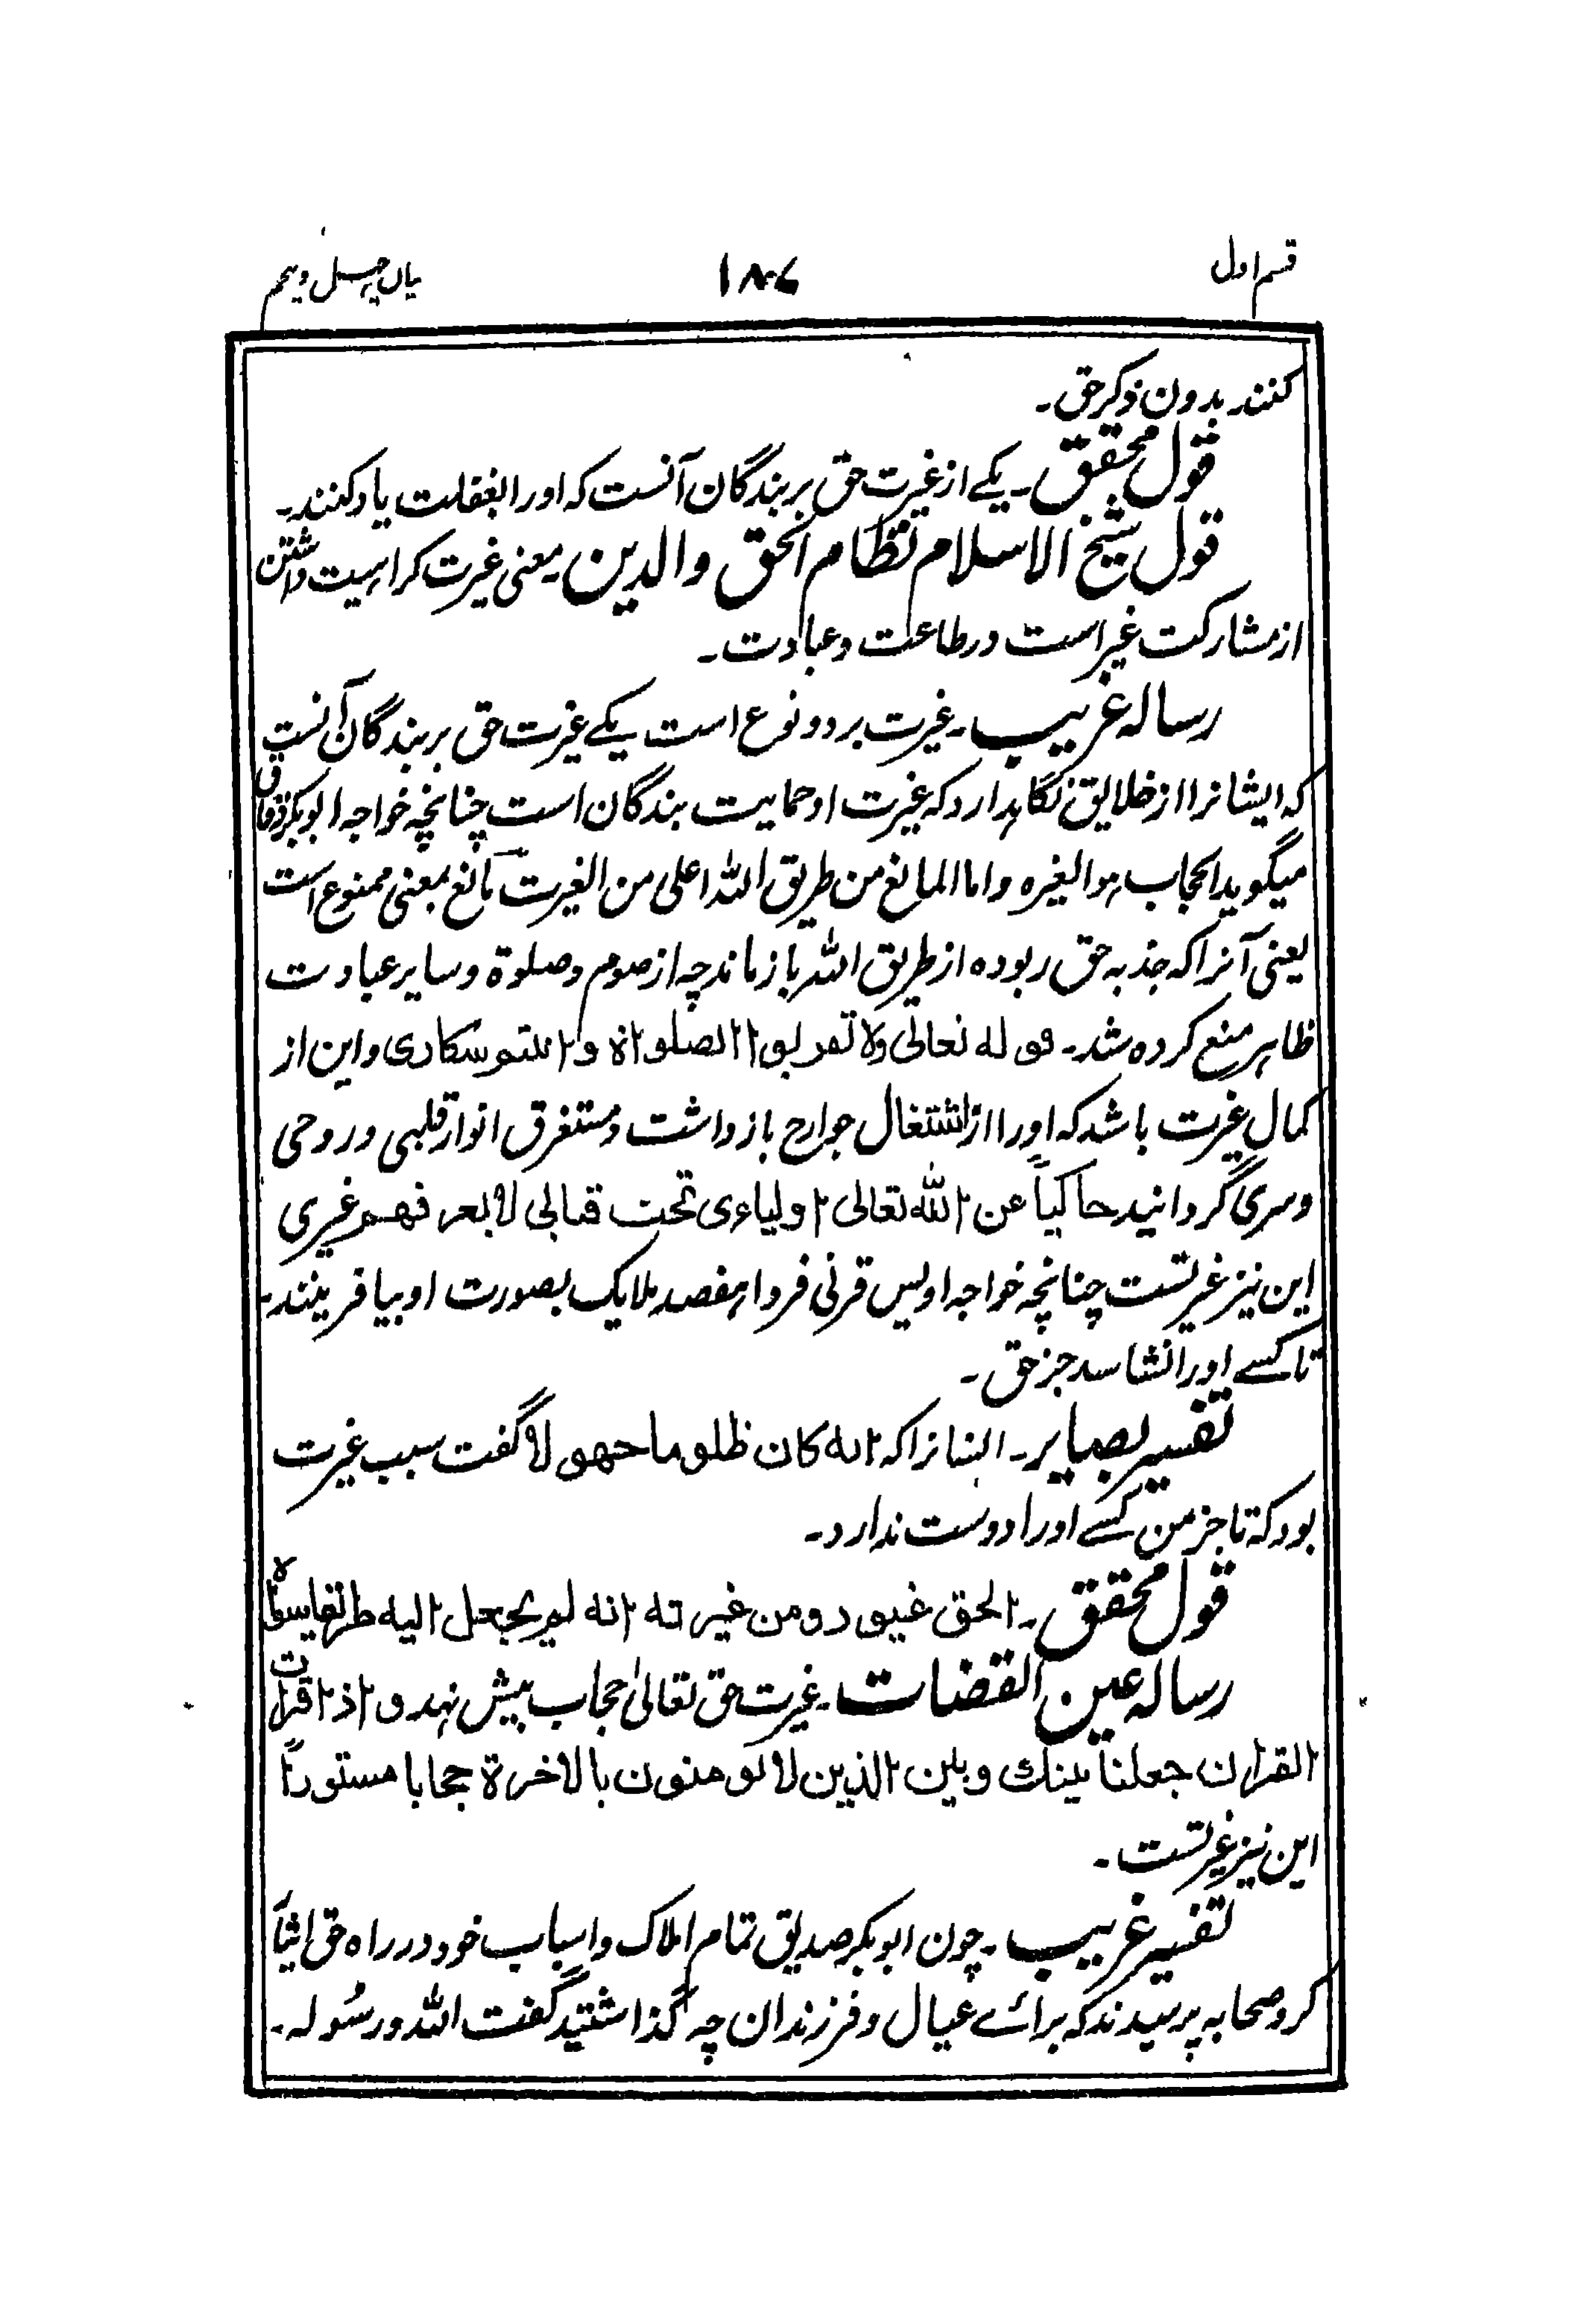 قسم اول
١٨٧
بیان چہل و پنجم
کنند بدون ذکر حق۔
قول محقق۔ یکے از غیرت حق بر بندگان آنست کہ اورا بغفلت یاد کنند۔
قول شیخ الاسلام نظام الحق والدین معنی غیرت کراہیت داشتن
از مشارکت غیر است در طاعت و عبادت۔
رسالہ غریب۔ غیرت بر دو نوع است یکے غیرت حق بر بندگان آنست
کہ ایشانرا از خلایق نگاہدارد کہ غیرت او حمایت بندگان است چنانچہ خواجہ ابوبکر
میگوید الحجاب ہو الغیرہ واما المانع من طریق اللہ اعلی من الغیرت مانع بمعنی ممنوع است
یعنی آنرا کہ جذبہ حق ربودہ از طریق اللہ باز ماند چہ از صوم و صلوة و سایر عبادت
ظاہر منع کردہ شد۔ قولہ تعالی ولا تقربوا الصلواة وانتم سکاری و این از
کمال غیرت باشد کہ اورا از اشتغال جوارح باز داشت و مستغرق انوار قلبی و روحی
و سری گردانید حاکیاً عن اللہ تعالی اولیاءی تحت قبابی لا یعرفهم غیری
این نیز غیرتست چنانچہ خواجہ اویس قرنی فردا ہفصد ملایک بصورت او بیافرینند۔
تا کسے اورا نشاسد جز حق۔
تفسیر بصایر۔ انسانرا کہ انه کان ظلوما جهولا گفت سبب غیرت
بود کہ تا جز من کسے اورا دوست ندارد۔
قول محقق۔ الحق غیور و من غیرته انه لم یجعل الیه طریقا سواہ
رسالہ عین القضات۔ غیرت حق تعالیٰ حجاب پیش نہد واذا قرات
القران جعلنا بینك وبین الذین لا یومنون بالاخرة حجابا مستوراً
این نیز غیرتست۔
تفسیر غریب۔ چون ابوبکر صدیق تمام املاک و اسباب خود در راہ حق
کرد صحابہ پرسیدند کہ برائے عیال و فرزندان چہ گذاشتید گفت اللہ ورسُولہ۔